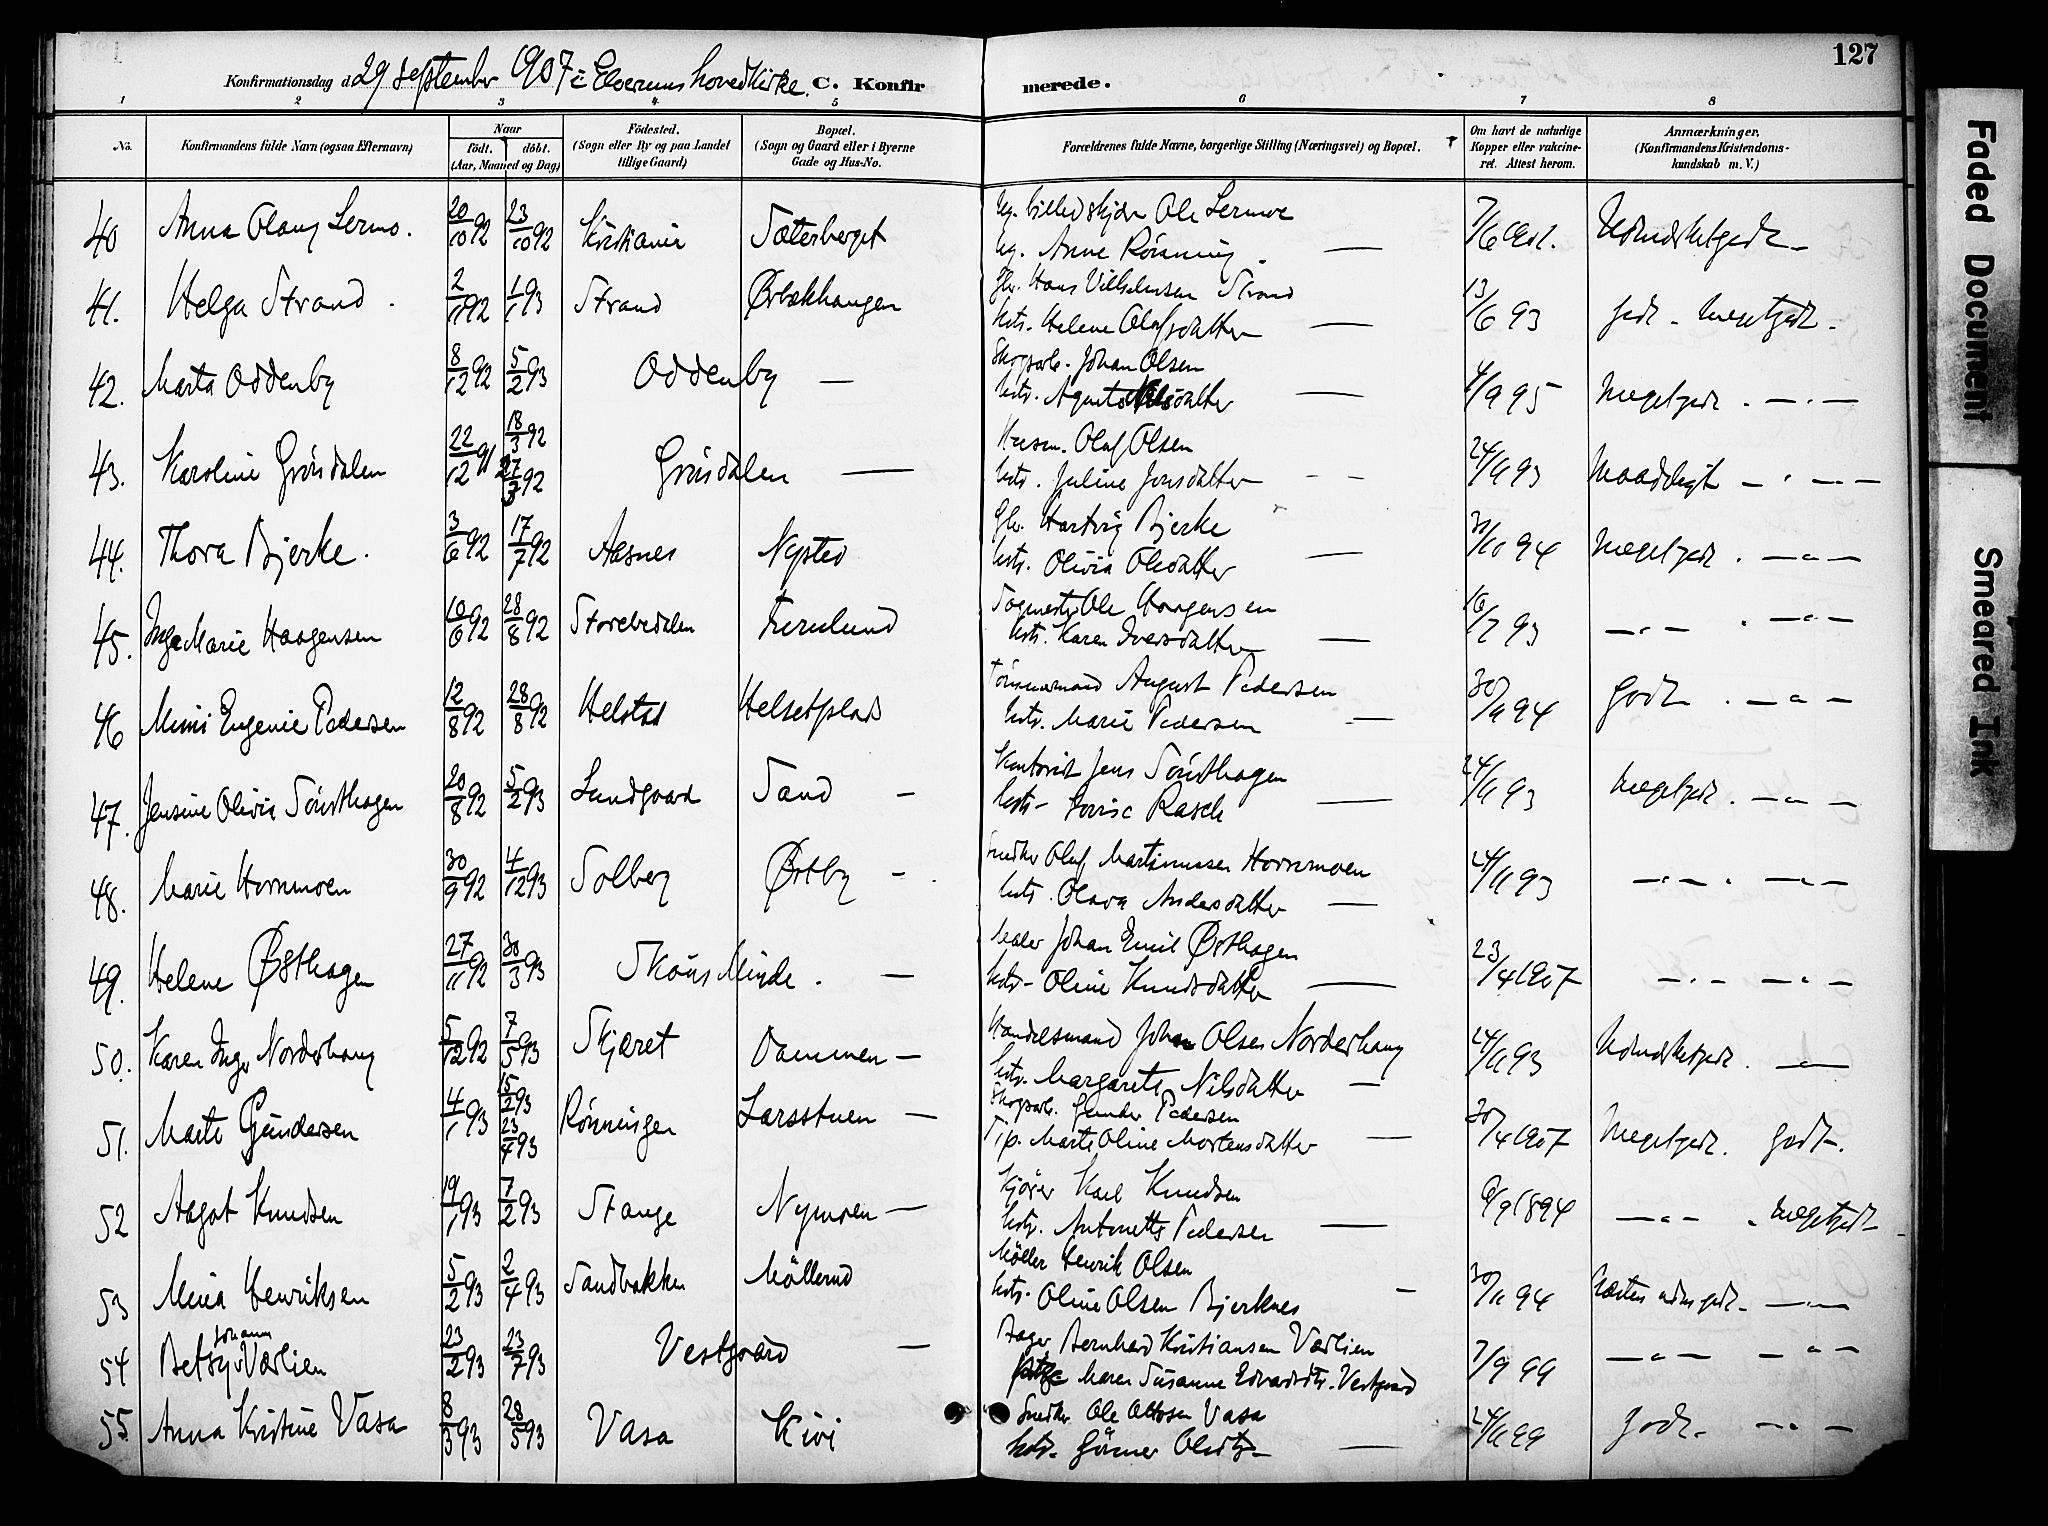 127
Konfirmationsdag d. 29 september 1907 i Elverums hovedkirke. C. Konfirmerede.
1 2 3 4 5 6 7 8
No. Konfirmandens fulde Navn (ogsaa Efternavn) Naar født. døbt. (Aar, Maaned og Dag) Fødested. (Sogn eller By og paa Landet tillige Gaard) Bopæl. (Sogn og Gaard eller i Byerne Gade og Hus-No. Forældrenes fulde Navne, borgerlige Stilling (Næringsvei) og Bopæl. Om havt de naturlige Kopper eller vakcineret. Attest herom. Anmærkninger. (Konfirmandens Kristendomskundskab m. V.)
40 Anna Olaug Lermo. 20/10 92 23/10 92 Kristiania Sæterberget Ole Lermoe
Anne Rønning — 7/6 1901. Udmerketgodt —
41. Helga Strand. 2/11 92 1/1 93 Strand Ørbækhaugen Hans Vilhelmsen Strand
hstr. Helene Olafsdatter — 13/6 93 godt - megetgodt.
42. Marta Oddenby 8/12 92 5/2 93 Oddenby — Skogsarb. Johan Olsen
hstr. Agnete Nilsdatter — 4/9 95 Megetgodt. — . —
43. Karoline Grønsdalen 22/12 91 18/3 92 27/3 92 Grønsdalen — Husm. Olaf Olsen
hstr. Juline Jonsdatter - - 24/11 93 Maadeligt — . — . —
44. Thora Bjerke. 3/6 92 17/7 92 Aasnes Nysted Hartvig Bjerke
hstr. Olivia Olsdatter — 30/10 94 Megetgodt. — " —
45. Inga Marie Haagensen 10/6 92 28/8 92 Storebedalen Furulund Sagmester Ole Haagensen
hstr. Karen Iversdatter — 16/7 93 — " — . — " —
46 Mimi Eugenie Pedersen 12/8 92 28/8 92 Helstad Helsetplads Tømmermand August Pedersen
hstr. Marie Pedersen — 30/11 94 Godt . — " —
47. Jensine Olivia Sønsthagen 20/8 92 5/2 93 Lundgaard Sand — Kontorist Jens Sønsthagen
hstr. Lovise Rasch — 24/11 93 Megetgodt. — " —
48. Marie Hornmoen 30/9 92 4/12 93 Solberg Østby — Snedker Olaf Martinussen Hornmoen
hstr. Olava Andersdatter — 24/11 93 — " — . — " —
49. Helene Østhagen 27/11 92 30/3 93 Skøns Minde. — Johan Emil Østhagen
hstr. Oline Knudsdatter — 23/4 1907 — " — — " —
50. Karen Inga Norderhaug 5/12 92 7/5 93 Skjæret Dammen — Handelsmand Johan Olsen Norderhaug
hstr. Margarete Nilsdatter — 24/11 93 Udmerketgodt. — " —
51. Marte Gundersen 4/1 93 15/2 93 23/4 93 Rønningen Larsstuen — Skogsarb. Gunder Pedersen
Tjp. Marte Oline Mortensdatter — 30/4 1907 Megetgodt. godt.
52 Aagot Knudsen 19/1 93 7/2 93 Stange Nymoen — Kjører Karl Knudsen
hstr. Antonette Pedersen — 9/9 1894 — " — . megetgodt
53 Mina Henriksen 5/2 93 2/4 93 Sandbakken Møllerud Møller Henrik Olsen
hstr. Oline Olsen Bjerknes — 30/11 94 Næsten udm godt. — " —
54 Betsy Johanne Værlien 23/2 93 23/7 93 Vestgaard — Bager Bernhard Kristiansen Værlien
Maren Susanne Edvardsdtr. Vestgaard 7/9 99 — " — — " —
55 Anna Kristine Vasa 8/3 93 28/5 93 Vasa Kivi Snedker Ole Ottosen Vasa
hstr. Gunner Olsdtr — 24/11 99 Godt. — " —
Faded Document
Smeared Ink